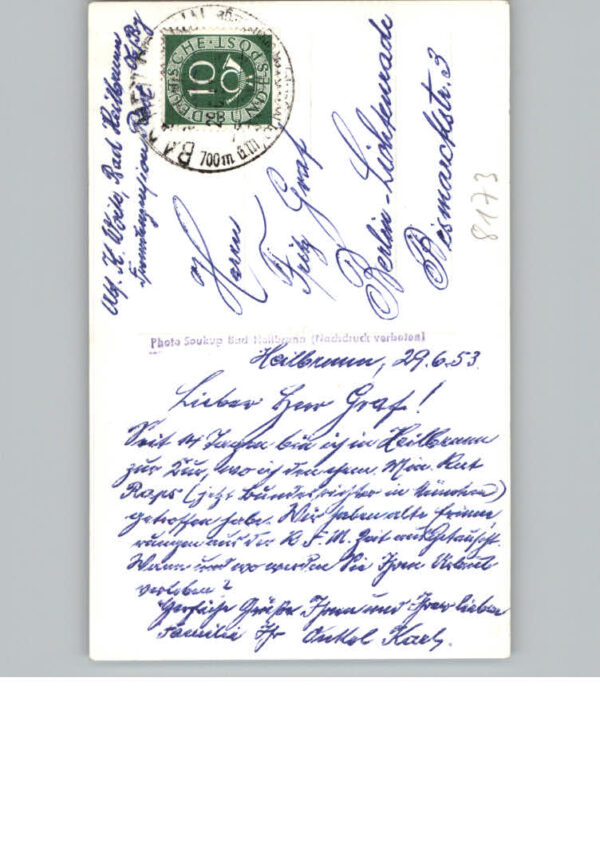 Abs. K. Wörle, Bad Heilbrunn
Fremdenpension
DEUTSCHE BUNDESPOST
10
700m ü.M
Herrn
Fritz Graf
Berlin-Lichtenrade
Bismarckstr. 3
8173
Photo Soukup Bad Heilbrunn (Nachdruck verboten)
Heilbrunn, 29.6.53.
Lieber Herr Graf!
Seit 14 Tagen bin ich in Heilbrunn
zur Kur, wo ich den ehem. Min. Rat
Raps (jetzt Bundesrichter in München)
getroffen habe. Wir haben alte Erinne
rungen aus der R.F.M. Zeit ausgetauscht.
Wann und wo werden Sie Ihren Urlaub
verleben?
Herzliche Grüße Ihnen und Ihrer lieben
Familie Ihr Onkel Karl.